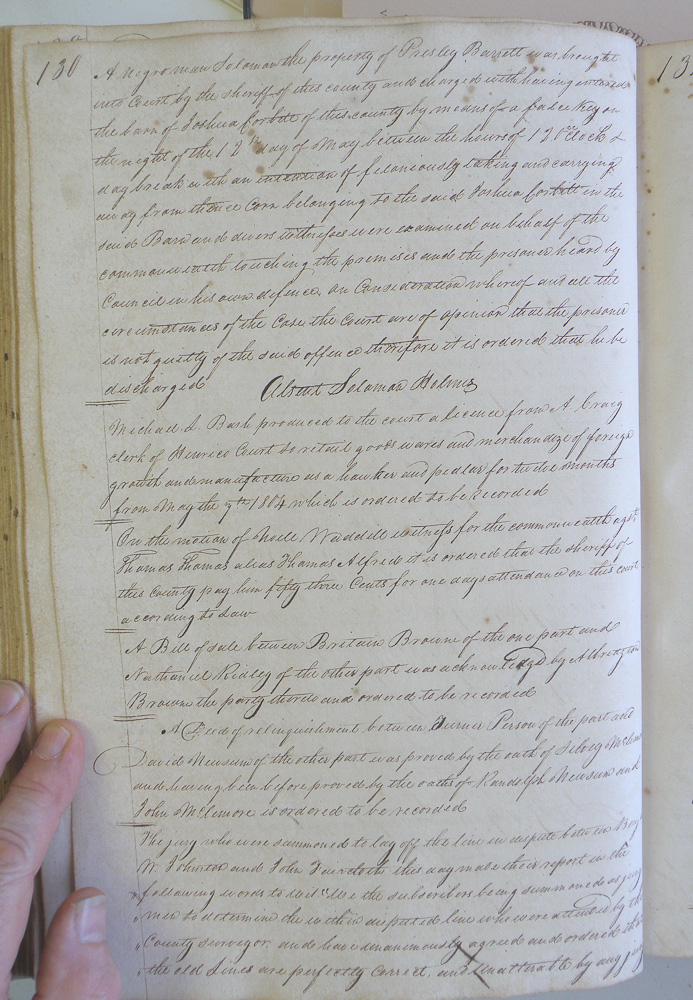 130
A negro man Solomon the property of Presley Barrett was brought
into Court by the sheriff of this county and charged with having entered
the barn of Joshua Corbitt of this county by means of a false key on
the night of the 12th day of May between the hours of 12 oClock &
day break with an intention of feloniously taking and carrying
away from thence Corn belonging to the said Joshua Corbitt in the
said Barn and divers witnesses were examined on behalf of the
commonwealth touching the premises and the prisoner heard by
Council in his own defence, on Consideration whereof and all the
circumstances of the Case the Court are of opinion that the prisoner
is not guilty of the said offence therefore it is ordered that he be
discharged Absent Solomon Holmes
Michael S. Bash produced to the court a licence from A. Craig
clerk of Henrico Court to retail goods wares and merchandize of foreign
growth and manufacture as a hawker and pedlar for twelve months
from May the 7th 1804 which is ordered to be recorded
On the motion of Noell Waddill witness for the commonwealth agst
Thomas Thomas alias Thomas Alfred it is ordered that the sheriff of
this County pay him fifty three Cents for one days attendance on this court
according to Law
A Bill of sale between Britain Browne of the one part and
Nathaniel Ridley of the other part was acknowledged by Albridgton
Brown the party thereto and ordered to be recorded
A Deed of relinquishment between Turner Person of the part and
David Newsum of the other part was proved by the oath of
and having been before proved by the oaths of Randolph Newsum and
John McLemore is ordered to be recorded
The jury who were summoned to lay off the line in dispute between Benj
W. Johnston and John this day made their report in the
following words to wit "We the subscribers being summoned as jury
"men to determine the within disputed line who were attended by the
"County surveyor, and have unanimously agreed and ordered that
"the old Lines are perfectly Correct, and Unalterable by any jury